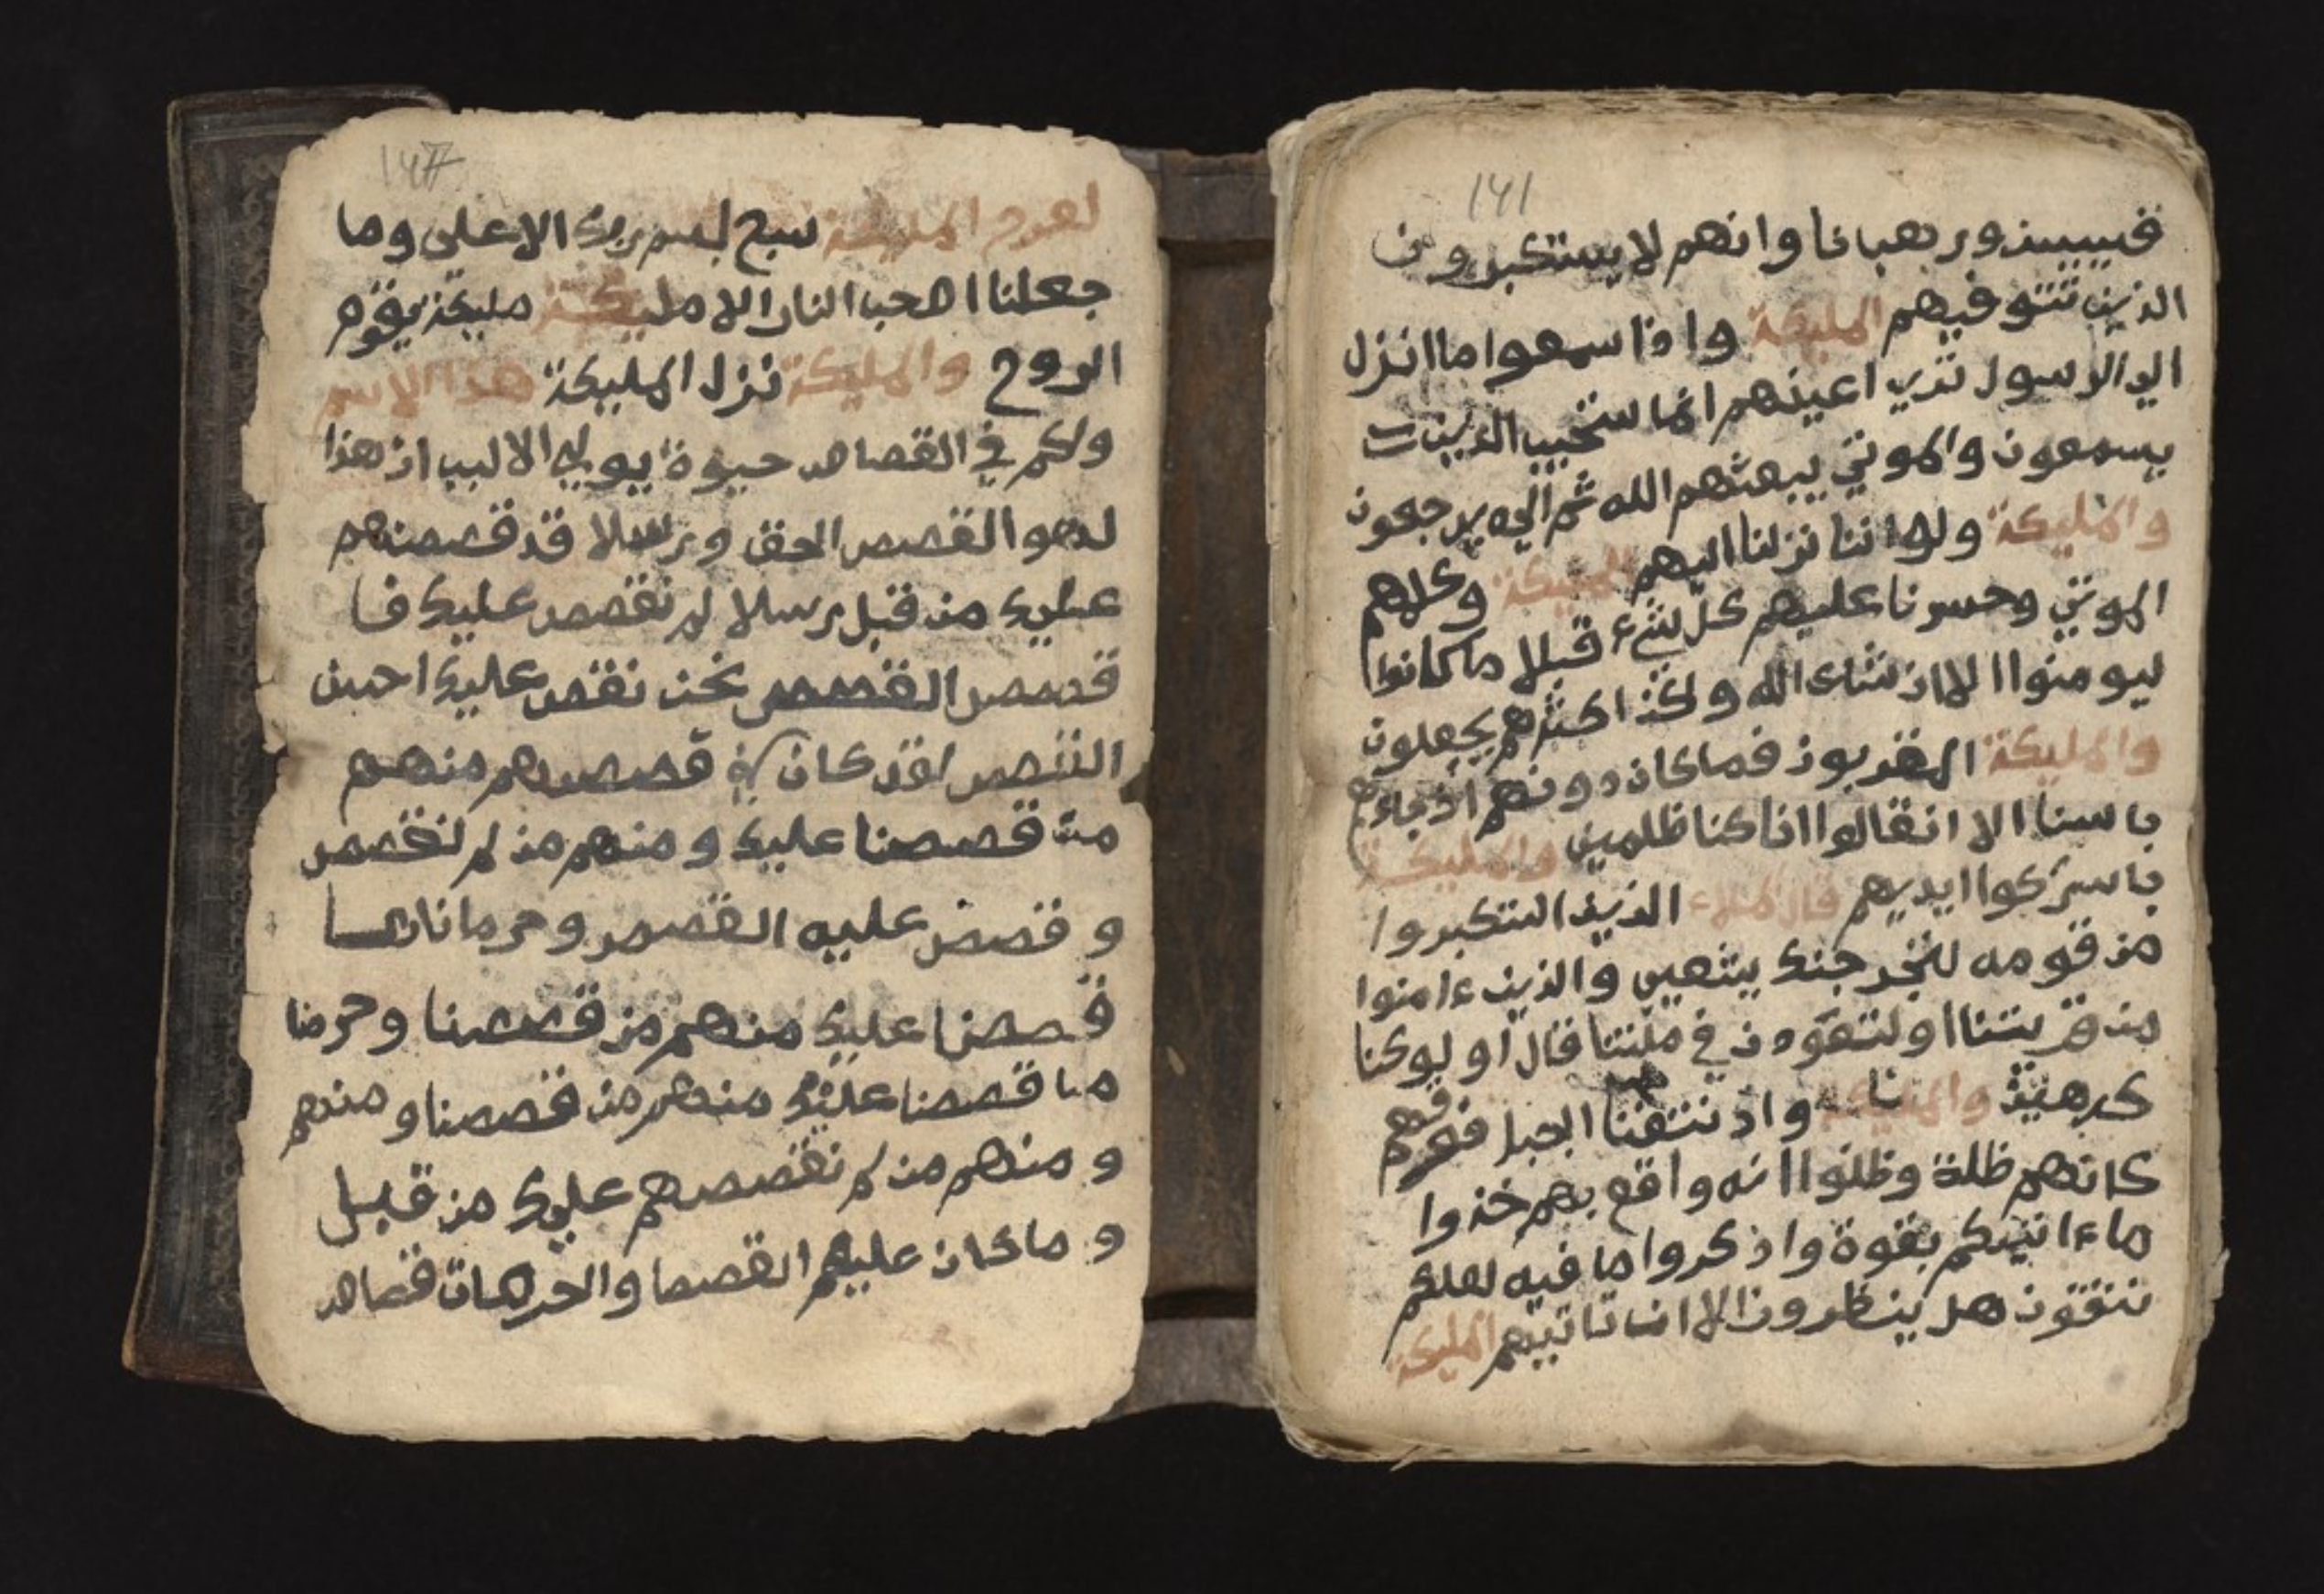 141
قسيسن ورهبانا وانهم لا يستكبرون
الذين تتوفيهم المليكة واذا سمعوا ما انزل
الي الرسول تري اعينهم انما ستجيب الذين
يسمعون والموتي يبعثهم الله ثم اليه يرجعون
والمليكة ولو اننا نزلنا اليهم المليكة وكلهم
الموتي وحسرنا عليهم كل شيء قبلا ما كانوا
ليومنوا الا ان يشاء الله ولكن اكثرهم يجهلون
والمليكة المقربون فما كان دونهم اذ جاءهم
باسنا الا ان قالوا انا كنا ظلمين والمليكة
باسركوا ايديهم قال الملاء الذين استكبروا
من قومه لنخرجنك يشعيب والذين ءامنوا
من قريتنا او لتعودن في ملتنا قال او لو كنا
كرهين والمليكة واذ نتقنا الجبل فوقهم
كانهم ظلة وظنوا انه واقع بهم خذوا
ماءاتينكم بقوة واذكروا ما فيه لعلكم
تتقون هل ينظرون الا ان تاتيهم المليكة
147
المليكة سبح بسم ربك الاعلى وما
جعلنا اصحب النار الا مليكة مليكة يقوم
الروح والمليكة نزل المليكة هذا الاسم
ولكم في القصاص حيوة يولي الالبب ان هذا
لهو القصص الحق ورسلا قد قصصنهم
عليك من قبل رسلا لم نقصص عليك فا
قصص القصص نحن نقص عليك احسن
القصص لقد كان في قصصهم منهم
من قصصنا عليك ومنهم من لم نقصص
وقصص عليه القصص وحرمانا
قصصنا عليك منهم من قصصنا وحرمنا
ما قصصنا عليك منهم من قصصنا ومنهم
ومنهم من لم نقصصهم عليك من قبل
وما كان عليهم القصصا والحرمات قصاص